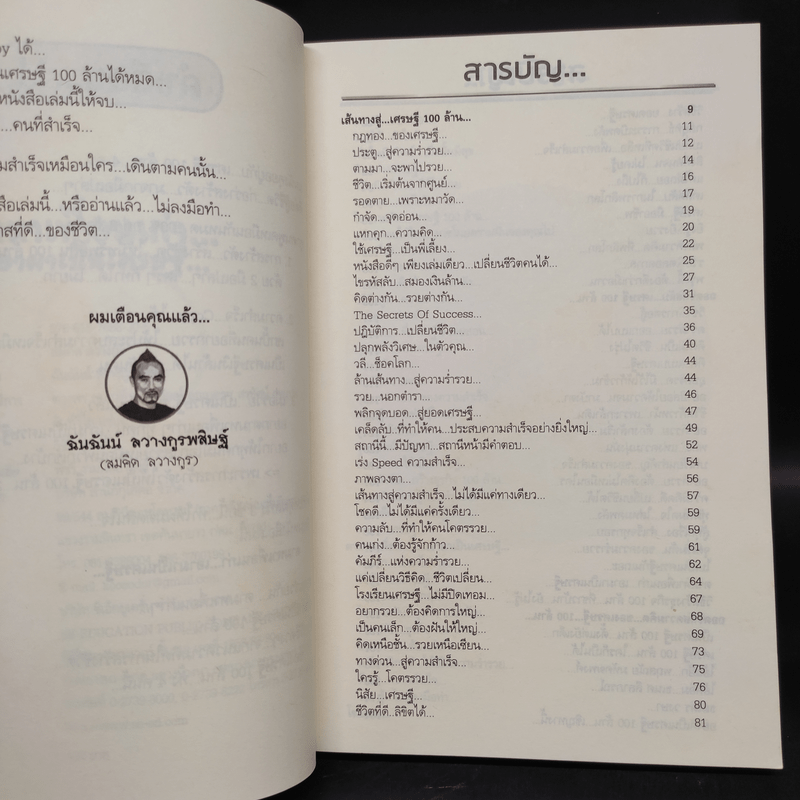 by ได้...
นเศรษฐี 100 ล้านได้หมด...
หนังสือเล่มนี้ให้จบ...
...คนที่สำเร็จ...
มสำเร็จเหมือนใคร...เดินตามคนนั้น...
สือเล่มนี้...หรืออ่านแล้ว...ไม่ลงมือทำ...
าสที่ดี...ของชีวิต...
ผมเตือนคุณแล้ว...
ฉันฉันน์ ลวางกูรพสิษฐ์
(สมคิด ลวางกูร)
สารบัญ...
เส้นทางสู่...เศรษฐี 100 ล้าน... 9
กฎทอง...ของเศรษฐี... 11
ประตู...สู่ความร่ำรวย... 12
ตามมา...จะพาไปรวย... 14
ชีวิต...เริ่มต้นจากศูนย์... 16
รอดตาย...เพราะหมาวัด... 17
กำจัด...จุดอ่อน... 19
แหกคุก...ความคิด... 20
ใช้เศรษฐี...เป็นพี่เลี้ยง... 22
หนังสือดีๆ เพียงเล่มเดียว...เปลี่ยนชีวิตคนได้... 25
ไขรหัสลับ...สมองเงินล้าน... 27
คิดต่างกัน...รวยต่างกัน... 31
The Secrets Of Success... 35
ปฏิบัติการ...เปลี่ยนชีวิต... 36
ปลุกพลังวิเศษ...ในตัวคุณ... 40
วลี...ช็อคโลก... 44
ล้านเส้นทาง...สู่ความร่ำรวย... 44
รวย...นอกตำรา... 46
พลิกจุดบอด...สู่ยอดเศรษฐี... 47
เคล็ดลับ...ที่ทำให้คน...ประสบความสำเร็จอย่างยิ่งใหญ่... 49
สถานีนี้...มีปัญหา...สถานีหน้ามีคำตอบ... 52
เร่ง Speed ความสำเร็จ... 54
ภาพลวงตา... 56
เส้นทางสู่ความสำเร็จ...ไม่ได้มีแค่ทางเดียว... 57
โชคดี...ไม่ได้มีแค่ครั้งเดียว... 59
ความลับ...ที่ทำให้คนโคตรรวย... 59
คนเก่ง...ต้องรู้จักก้าว... 61
คัมภีร์...แห่งความร่ำรวย... 62
แค่เปลี่ยนวิธีคิด...ชีวิตเปลี่ยน... 64
โรงเรียนเศรษฐี...ไม่มีปิดเทอม... 67
อยากรวย...ต้องคิดการใหญ่... 68
เป็นคนเล็ก...ต้องฝันให้ใหญ่... 69
คิดเหนือชั้น...รวยเหนือเซียน... 73
ทางด่วน...สู่ความสำเร็จ... 75
ใครรู้...โคตรรวย... 76
นิสัย...เศรษฐี... 80
ชีวิตที่ดี...ลิขิตได้... 81